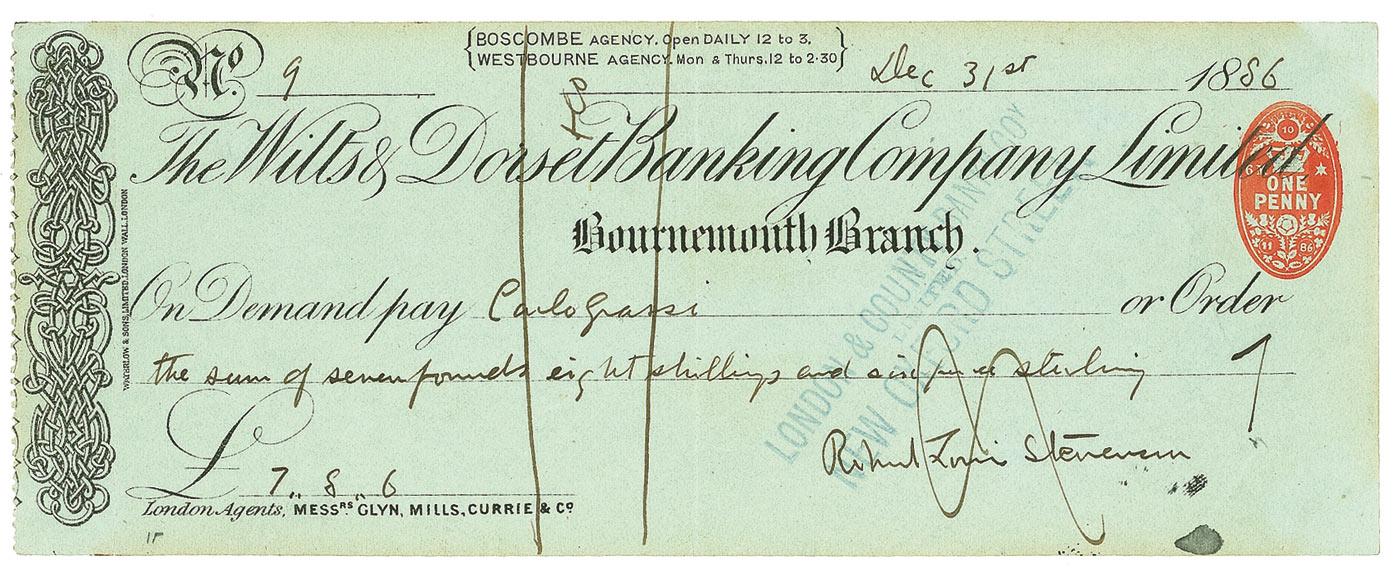 BOSCOMBE AGENCY. Open DAILY 12 to 3.
WESTBOURNE AGENCY. Mon & Thurs. 12 to 2·30
No. 9
Dec 31st 1886
The Wilts & Dorset Banking Company Limited,
Bournemouth Branch.
On Demand pay Carlo Grassi or Order
the sum of seven pounds eight shillings and sixpence sterling
£ 7 ,, 8 ,, 6
Robert Louis Stevenson
London Agents, MESSRS GLYN, MILLS, CURRIE & Co
WATERLOW & SONS, LIMITED, LONDON WALL, LONDON
10
ONE
PENNY
11 86
LONDON & COUNTY BANKG COY
LIMITED
NEW OXFORD STREET